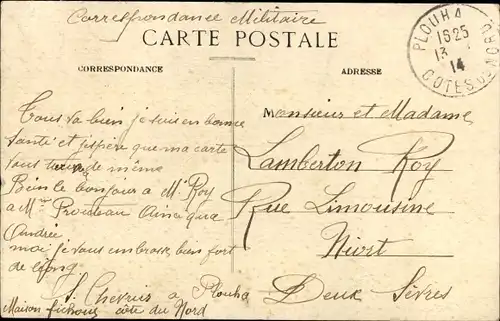 Correspondance Militaire
CARTE POSTALE
PLOUHA
1625
13
14
COTES DU NORD
CORRESPONDANCE
ADRESSE
Tous va bien je suis en bonne
santé et j'espère que ma carte
vous de même
Bien le bonjour a Mr Roy
a Mme ainsi qua
Andrée
moi je vous embrasse bien fort
de
S. Chevrier a Plouha
Maison côte du Nord
Monsieur et Madame
Lamberton Roy
Rue Limousine
Niort
Deux Sèvres